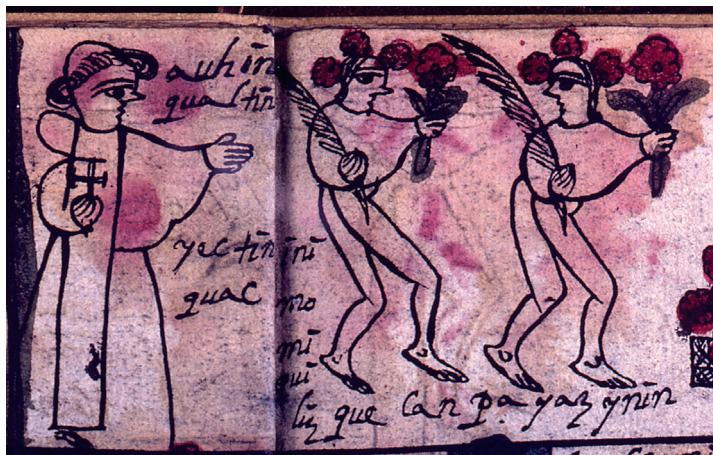 auhin
qualtin
yectin ini
quac mo
mi
liz que can pa yaz ynin